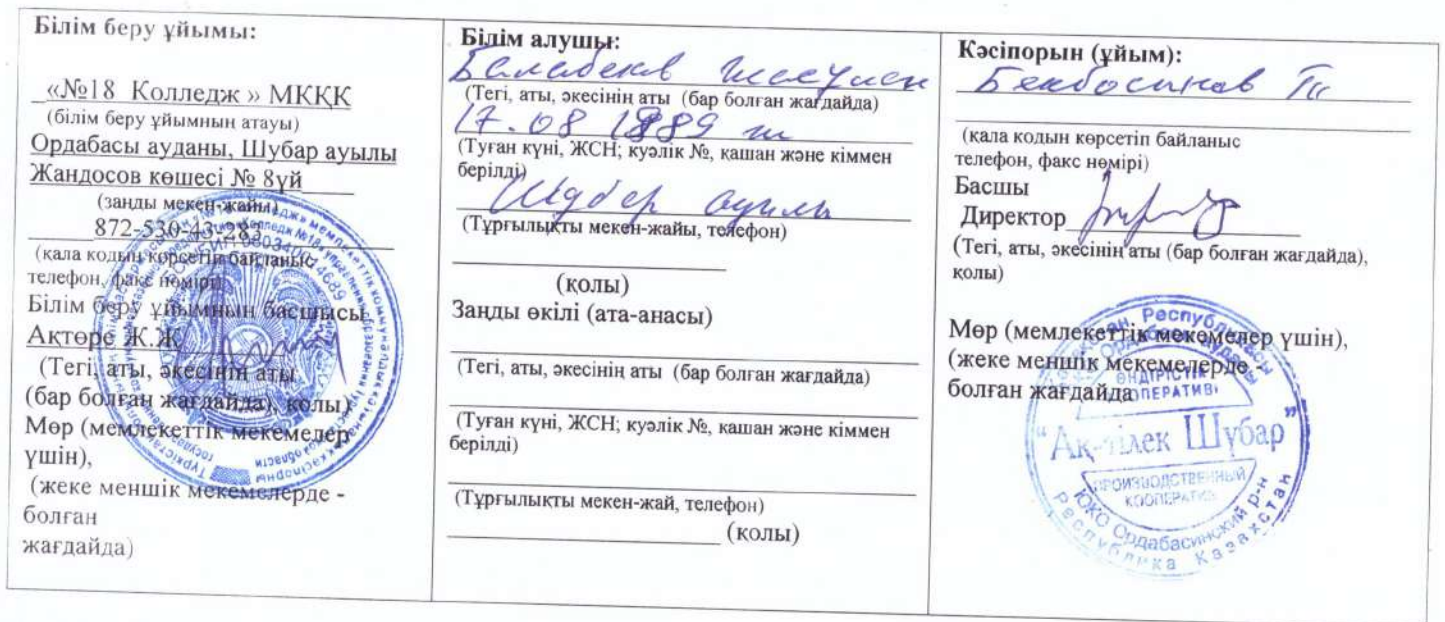 Білім беру ұйымы:
«№18 Колледж » МКҚК
(білім беру ұйымнын атауы)
Ордабасы ауданы, Шубар ауылы
Жандосов көшесі № 8үй
(заңды мекен-жайы)
872-530-43-283
(қала кодын көрсетіп байланыс
телефон, факс нөмірі)
Білім беру ұйымнын басшысы
Ақтөре Ж.Ж
(Тегі, аты, әкесінің аты
(бар болған жағдайда), қолы)
Мөр (мемлекеттік мекемелер
үшін),
(жеке меншік мекемелерде -
болған
жағдайда)
Білім алушы:
(Тегі, аты, әкесінің аты (бар болған жағдайда)
17.08 1989
(Туған күні, ЖСН; куәлік №, қашан және кіммен
берілді)
Шубар ауылы
(Тұрғылықты мекен-жайы, телефон)
(қолы)
Заңды өкілі (ата-анасы)
(Тегі, аты, әкесінің аты (бар болған жағдайда)
(Туған күні, ЖСН; куәлік №, қашан және кіммен
берілді)
(Тұрғылықты мекен-жай, телефон)
(қолы)
Кәсіпорын (ұйым):
Бекбосинов
(қала кодын көрсетіп байланыс
телефон, факс нөмірі)
Басшы
Директор
(Тегі, аты, әкесінің аты (бар болған жағдайда),
қолы)
Мөр (мемлекеттік мекемелер үшін),
(жеке меншік мекемелерде -
болған жағдайда
ӨНДІРІСТІК
КООПЕРАТИВІ
"Ақ-тілек Шубар"
ПРОИЗВОДСТВЕННЫЙ
КООПЕРАТИВ
ЮКО Ордабасинский р-н
Республика Казахстан